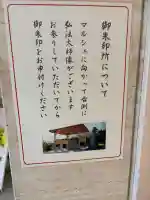 御朱印所について
マルシェに向かって右側に
弘法大師像がございます
お参りしていただいてから
御朱印をお申付けください